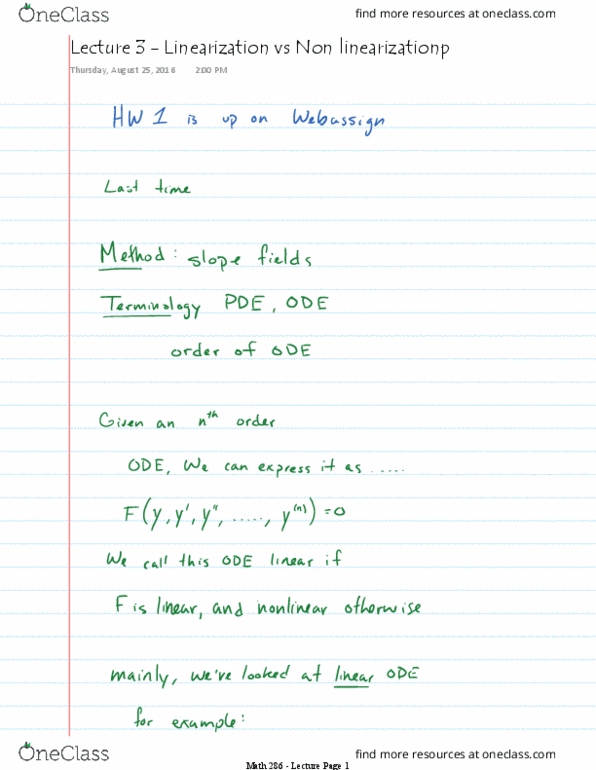 OneClass
find more resources at oneclass.com
Lecture 3 - Linearization vs Non linearizationp
Thursday, August 25, 2016 2:00 PM
HW 1 is up on Webassign
Last time
Method: slope fields
Terminology PDE, ODE
order of ODE
Given an nth order
ODE, We can express it as .....
F(y, y', y'', ....., y^(n)) = 0
We call this ODE linear if
F is linear, and nonlinear otherwise
mainly, we've looked at linear ODE
for example:
OneClass
find more resources at oneclass.com
Math 286 - Lecture Page 1